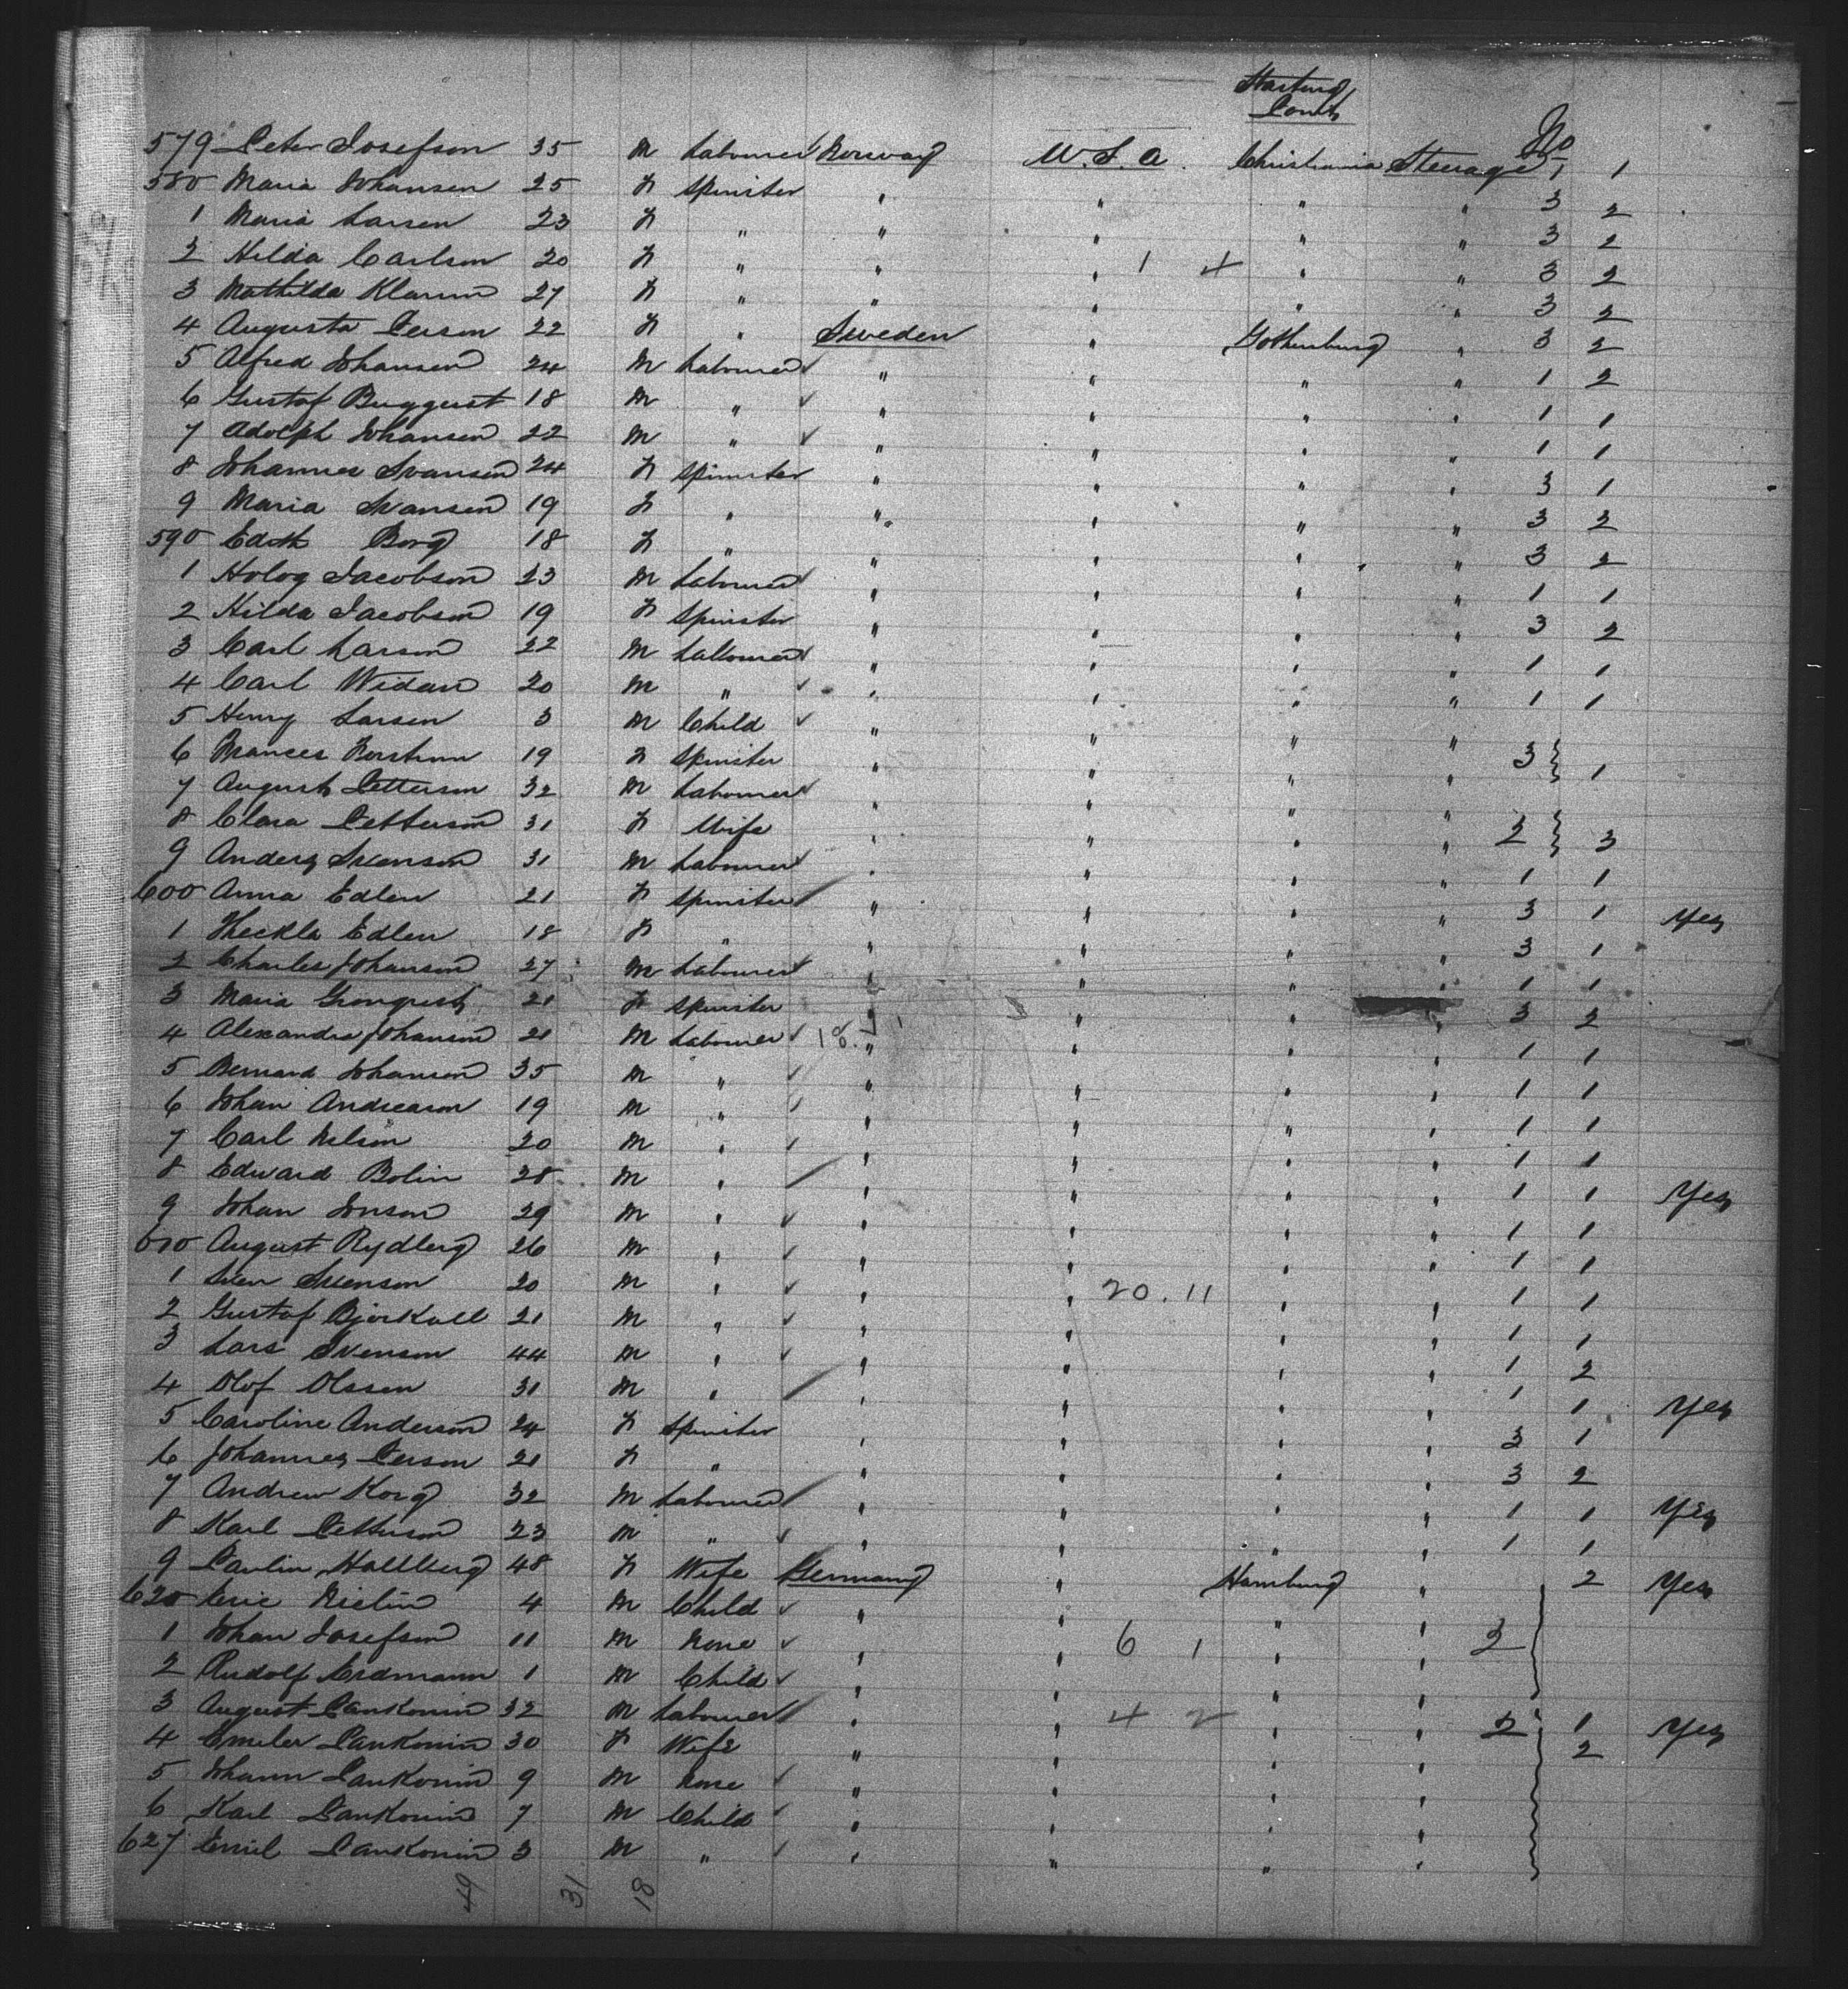 Starting Point
No
579 Peter Josefson 35 M Labourer Norway U.S.A. Christiania Steerage 1 1
580 Maria Johansen 25 F Spinster " " " " 3 2
1 Maria Larsen 23 F " " " " " 3 2
2 Hilda Carlson 20 F " " " 1 4 " " 3 2
3 Mathilda Klarum 27 F " " " " " 3 2
4 Augusta Person 22 F " Sweden " Gothenburg " 3 2
5 Alfred Johansen 24 M Labourer " " " " 1 2
6 Gustaf Buggust 18 M " " " " " 1 1
7 Adolph Johansen 22 M " " " " " 1 1
8 Johannes Svansen 24 F Spinster " " " " 3 1
9 Maria Svansen 19 F " " " " " 3 2
590 Edith Borg 18 F " " " " " 3 2
1 Holog Jacobson 23 M Labourer " " " " 1 1
2 Hilda Jacobson 19 F Spinster " " " " 3 2
3 Carl Larson 22 M Labourer " " " " 1 1
4 Carl Widan 20 M " " " " " 1 1
5 Henry Larsen 3 M Child " " " "
6 Frances 19 F Spinster " " " " 3 1
7 August Petterson 32 M Labourer " " " "
8 Clara Petterson 31 F Wife " " " " 2 3
9 Anders Svenson 31 M Labourer " " " " 1 1
600 Anna Edlen 21 F Spinster " " " " 3 1 Yes
1 Heckla Edlen 18 F " " " " " 3 1
2 Charles Johanson 27 M Labourer " " " " 1 1
3 Maria Gronquist 21 F Spinster " " " " 3 2
4 Alexandre Johanson 21 M Labourer 18 1 " " " " 1 1
5 Bernard Johanson 35 M " " " " " 1 1
6 Johan Andreason 19 M " " " " " 1 1
7 Carl Nelson 20 M " " " " " 1 1
8 Edward Bolin 28 M " " " " " 1 1 Yes
9 Johan Jonson 29 M " " " " " 1 1
610 August Rydberg 26 M " " " " " 1 1
1 Sven Svenson 20 M " " " 20.11 " " 1 1
2 Gustaf Bjorkall 21 M " " " " " 1 1
3 Lars Svenson 44 M " " " " " 1 2
4 Olof Olssen 31 M " " " " " 1 1 Yes
5 Caroline Anderson 24 F Spinster " " " " 3 1
6 Johannes Person 21 F " " " " " 3 2
7 Andrew Korg 32 M Labourer " " " " 1 1 Yes
8 Karl Petterson 23 M " " " " " 1 1
9 Paulin Hallberg 48 F Wife Germany " Hamburg " 2 Yes
620 Eric Nielin 4 M Child " " " "
1 Johan Josefson 11 M None " " 6 1 " " 2
2 Rudolf Erdmann 1 M Child " " " "
3 August Pankonin 32 M Labourer " " 4 2 " " 2 1 Yes
4 Emilee Pankonin 30 F Wife " " " " 2
5 Johann Pankonin 9 M None " " " "
6 Karl Pankonin 7 M Child " " " "
627 Emil Pankonin 3 M " " " " "
49 31 18